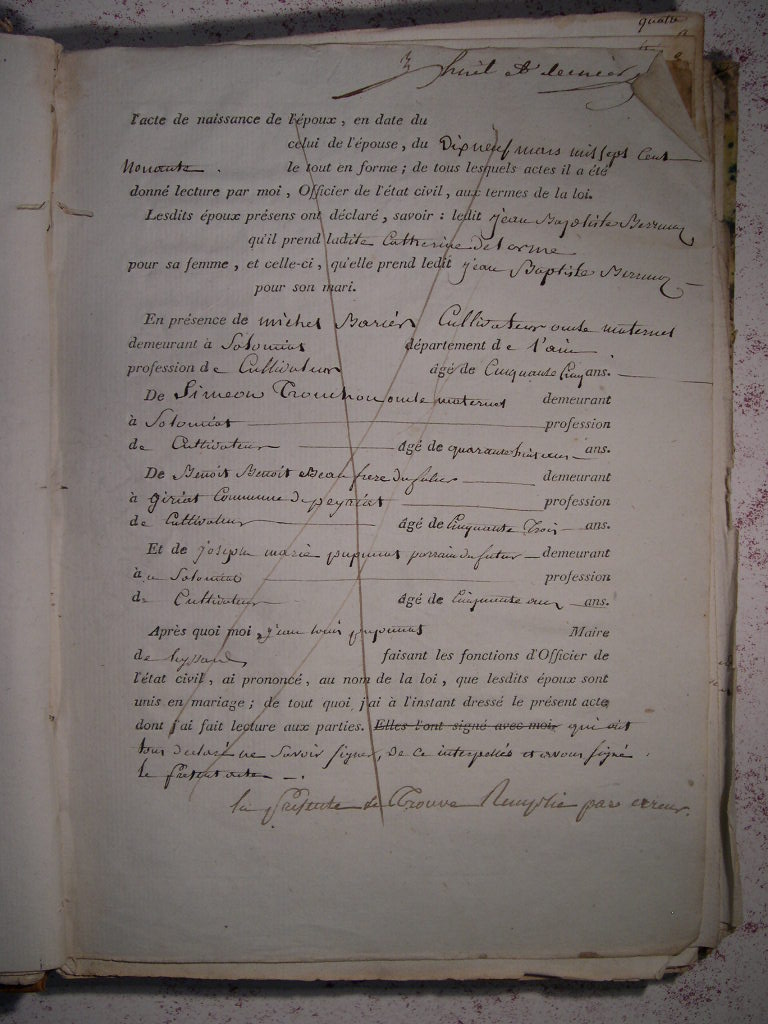 quatre
3 feuil et dernier
l'acte de naissance de l'époux, en date du
celui de l'épouse, du Dix neuf mars mil sept Cent
Nonante. le tout en forme; de tous lesquels actes il a été
donné lecture par moi, Officier de l'état civil, aux termes de la loi.
Lesdits époux présens ont déclaré, savoir: ledit jean Baptiste
qu'il prend ladite Catherine delorme
pour sa femme, et celle-ci, qu'elle prend ledit jean Baptiste
pour son mari.
En présence de michel Cultivateur oncle maternel
demeurant à Solomiat département de l'ain
profession de Cultivateur âgé de Cinquante Cinq ans.
De Simeon Tronchon oncle maternel demeurant
à Solomiat profession
de Cultivateur âgé de quarante huit ans ans.
De Benoit Benoit Beau frere du futur demeurant
à giriat Commune de peyriat profession
de Cultivateur âgé de Cinquante Trois ans.
Et de joseph marie pupunat parrain du futur demeurant
à Solomiat profession
de Cultivateur âgé de Cinquante ans.
Après quoi moi jean louis pupunat Maire
de hyssand faisant les fonctions d'Officier de
l'état civil, ai prononcé, au nom de la loi, que lesdits époux sont
unis en mariage; de tout quoi j'ai à l'instant dressé le présent acte
dont j'ai fait lecture aux parties. Elles l'ont signé avec moi, qui ont
tous declaré ne Savoir signer, de ce interpellés et avons signé
le présent acte
la présente se Trouve Remplie par erreur.